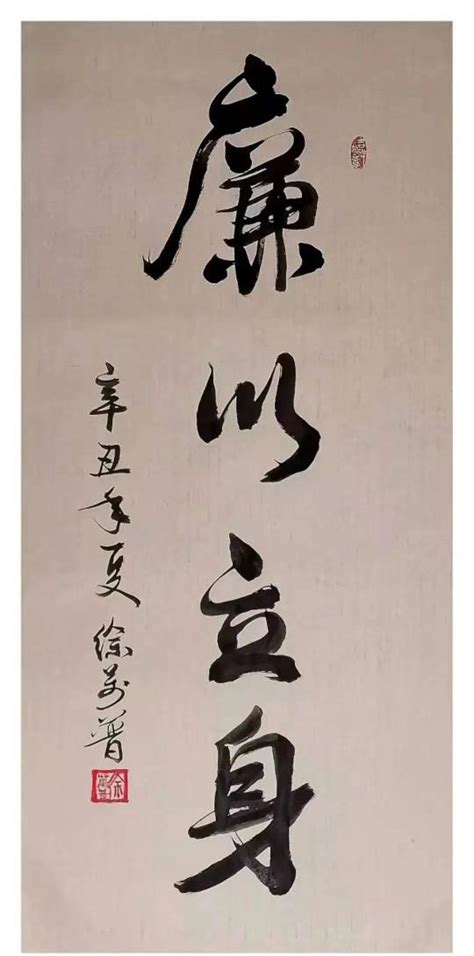 廉以立身
辛丑年夏 徐万普